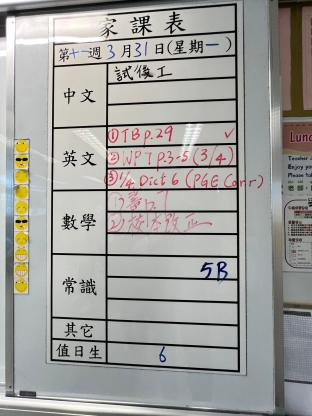 家課表
第十一週 3月31日(星期一)
中文
試後工
英文
① TB p.29 ✓
② WP 7 p.3-5 (3/4)
③ 1/4 Dict 6 (PGE Corr)
數學
2) 校本改正
常識
5B
其它
值日生
6
Lunc
Teacher a
Enjoy you
Please